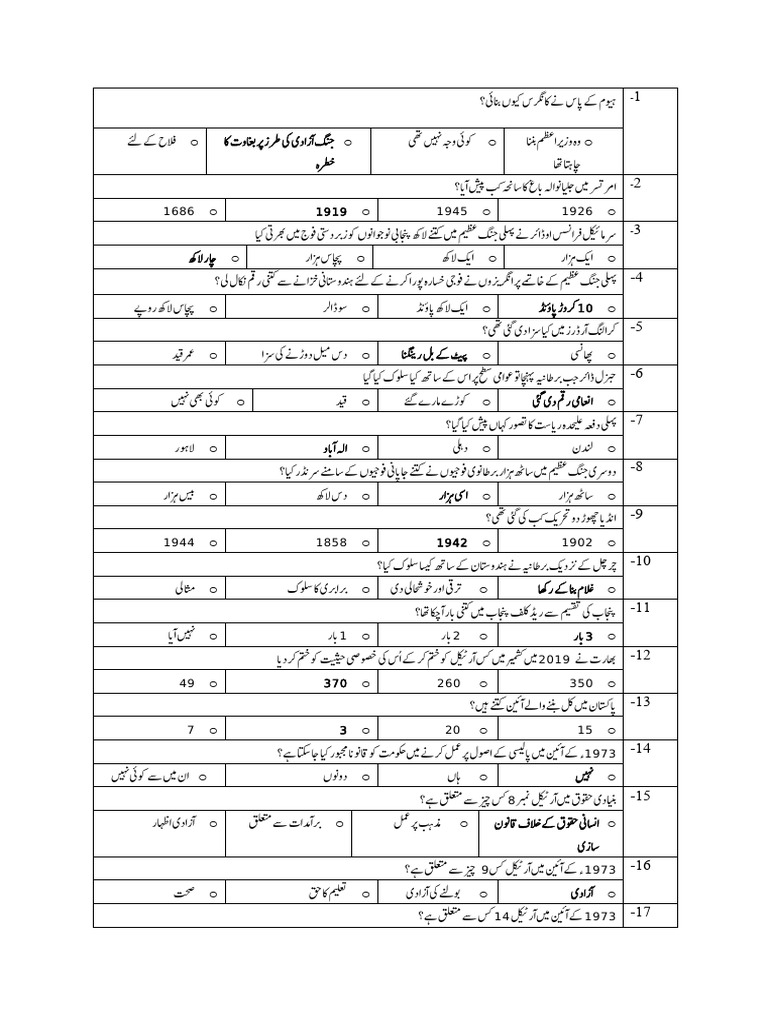 1- ہیوم کے پاس نے کانگرس کیوں بنائی؟
o وہ وزیراعظم بننا o کوئی وجہ نہیں تھی o جنگ آزادی کی طرز پر بغاوت کا o فلاح کے لئے
چاہتا تھا خطرہ
2- امرتسر میں جلیانوالہ باغ کا سانحہ کب پیش آیا؟
o 1926 o 1945 o 1919 o 1686
3- سر مائیکل فرانسس اوڈائر نے پہلی جنگ عظیم میں کتنے لاکھ پنجابی نوجوانوں کو زبردستی فوج میں بھرتی کیا
o ایک ہزار o ایک لاکھ o پچاس ہزار o چار لاکھ
4- پہلی جنگ عظیم کے خاتمے پر انگریزوں نے فوجی خسارہ پورا کرنے کے لئے ہندوستانی خزانے سے کتنی رقم نکال لی؟
o 10 کروڑ پاؤنڈ o ایک لاکھ پاؤنڈ o سو ڈالر o پچاس لاکھ روپے
5- کرالنگ آرڈرز میں کیا سزا دی گئی تھی؟
o پھانسی o پیٹ کے بل رینگنا o دس میل دوڑنے کی سزا o عمر قید
6- جنرل ڈائر جب برطانیہ پہنچا تو عوامی سطح پر اس کے ساتھ کیا سلوک کیا گیا
o انعامی رقم دی گئی o کوڑے مارے گئے o قید o کوئی بھی نہیں
7- پہلی دفعہ علیحدہ ریاست کا تصور کہاں پیش کیا گیا؟
o لندن o دہلی o الہ آباد o لاہور
8- دوسری جنگ عظیم میں ساٹھ ہزار برطانوی فوجیوں نے کتنے جاپانی فوجیوں کے سامنے سرنڈر کیا؟
o ساٹھ ہزار o اسی ہزار o دس لاکھ o بیس ہزار
9- انڈیا چھوڑ دو تحریک کب کی گئی تھی؟
o 1902 o 1942 o 1858 o 1944
10- چرچل کے نزدیک برطانیہ نے ہندوستان کے ساتھ کیسا سلوک کیا؟
o غلام بنا کے رکھا o ترقی اور خوشحالی دی o برابری کا سلوک o مثالی
11- پنجاب کی تقسیم سے ریڈ کلف پنجاب میں کتنی بار آچکا تھا؟
o 3 بار o 2 بار o 1 بار o نہیں آیا
12- بھارت نے 2019 میں کشمیر میں کس آرٹیکل کو ختم کر کے اُس کی خصوصی حیثیت کو ختم کر دیا
o 350 o 260 o 370 o 49
13- پاکستان میں کل بننے والے آئین کتنے ہیں؟
o 15 o 20 o 3 o 7
14- 1973ء کے آئین میں پالیسی کے اصول پر عمل کرنے میں حکومت کو قانونا مجبور کیا جاسکتا ہے؟
o نہیں o ہاں o دونوں o ان میں سے کوئی نہیں
15- بنیادی حقوق میں آرٹیکل نمبر 8 کس چیز سے متعلق ہے؟
o انسانی حقوق کے خلاف قانون o مذہب پر عمل o برآمدات سے متعلق o آزادی اظہار
سازی
16- 1973ء کے آئین میں آرٹیکل کس 9 چیز سے متعلق ہے؟
o آزادی o بولنے کی آزادی o تعلیم کا حق o صحت
17- 1973 کے آئین میں آرٹیکل 14 کس سے متعلق ہے؟